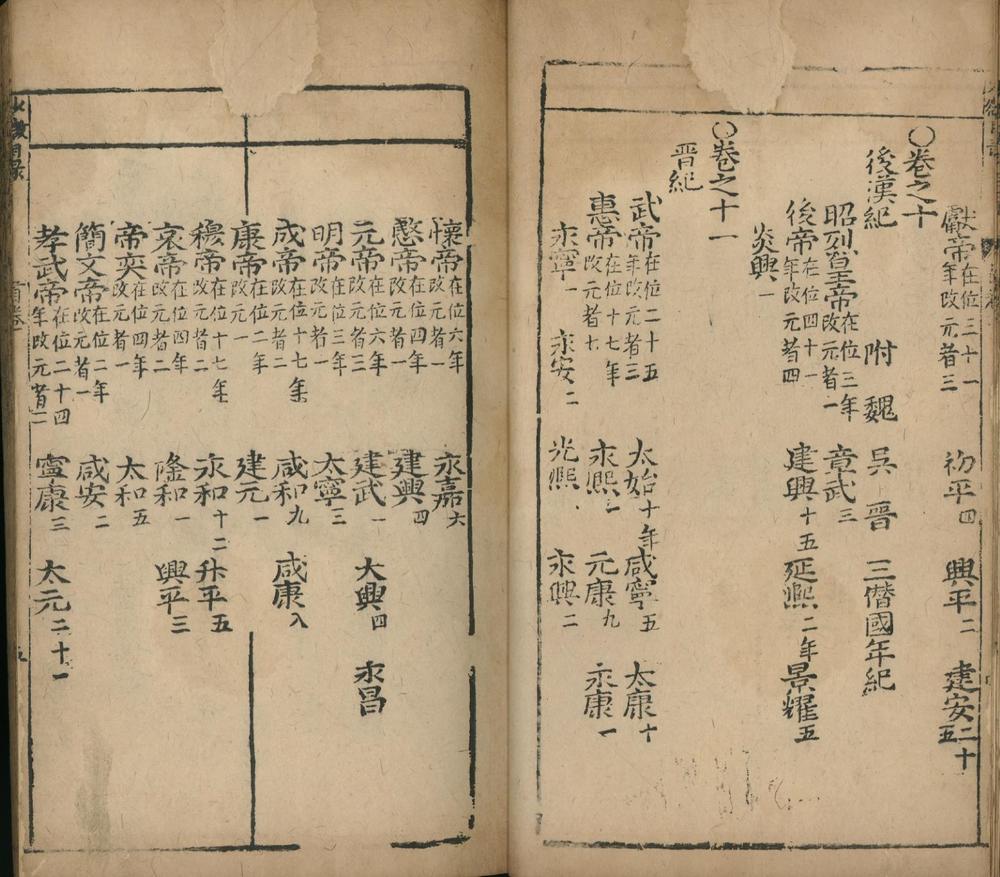 獻帝在位三十一年改元者三 初平四 興平二 建安二十五
〇卷之十
後漢紀 附 魏 吳 晉 三僭國年紀
昭烈皇帝在位三年改元者一 章武三
後帝在位四十一年改元者四 建興十五 延熈二年 景耀五
炎興一
〇卷之十一
晉紀
武帝在位二十五年改元者三 太始十年 咸寧五 太康十
惠帝在位十七年改元者七 永熈一 元康九 永康一
永寧一 永安二 光熈 永興二
懷帝在位六年改元者一 永嘉六
愍帝在位四年改元者一 建興四
元帝在位六年改元者三 建武一 大興四 永昌
明帝在位三年改元者一 太寧三
成帝在位十七年改元者二 咸和九 咸康八
康帝在位二年改元一 建元一
穆帝在位十七年改元者二 永和十二 升平五
哀帝在位四年改元者二 隆和一 興平三
帝奕在位四年改元者一 太和五
簡文帝在位二年改元者一 咸安二
孝武帝在位二十四年改元者二 寧康三 太元二十一
目录
首卷
五